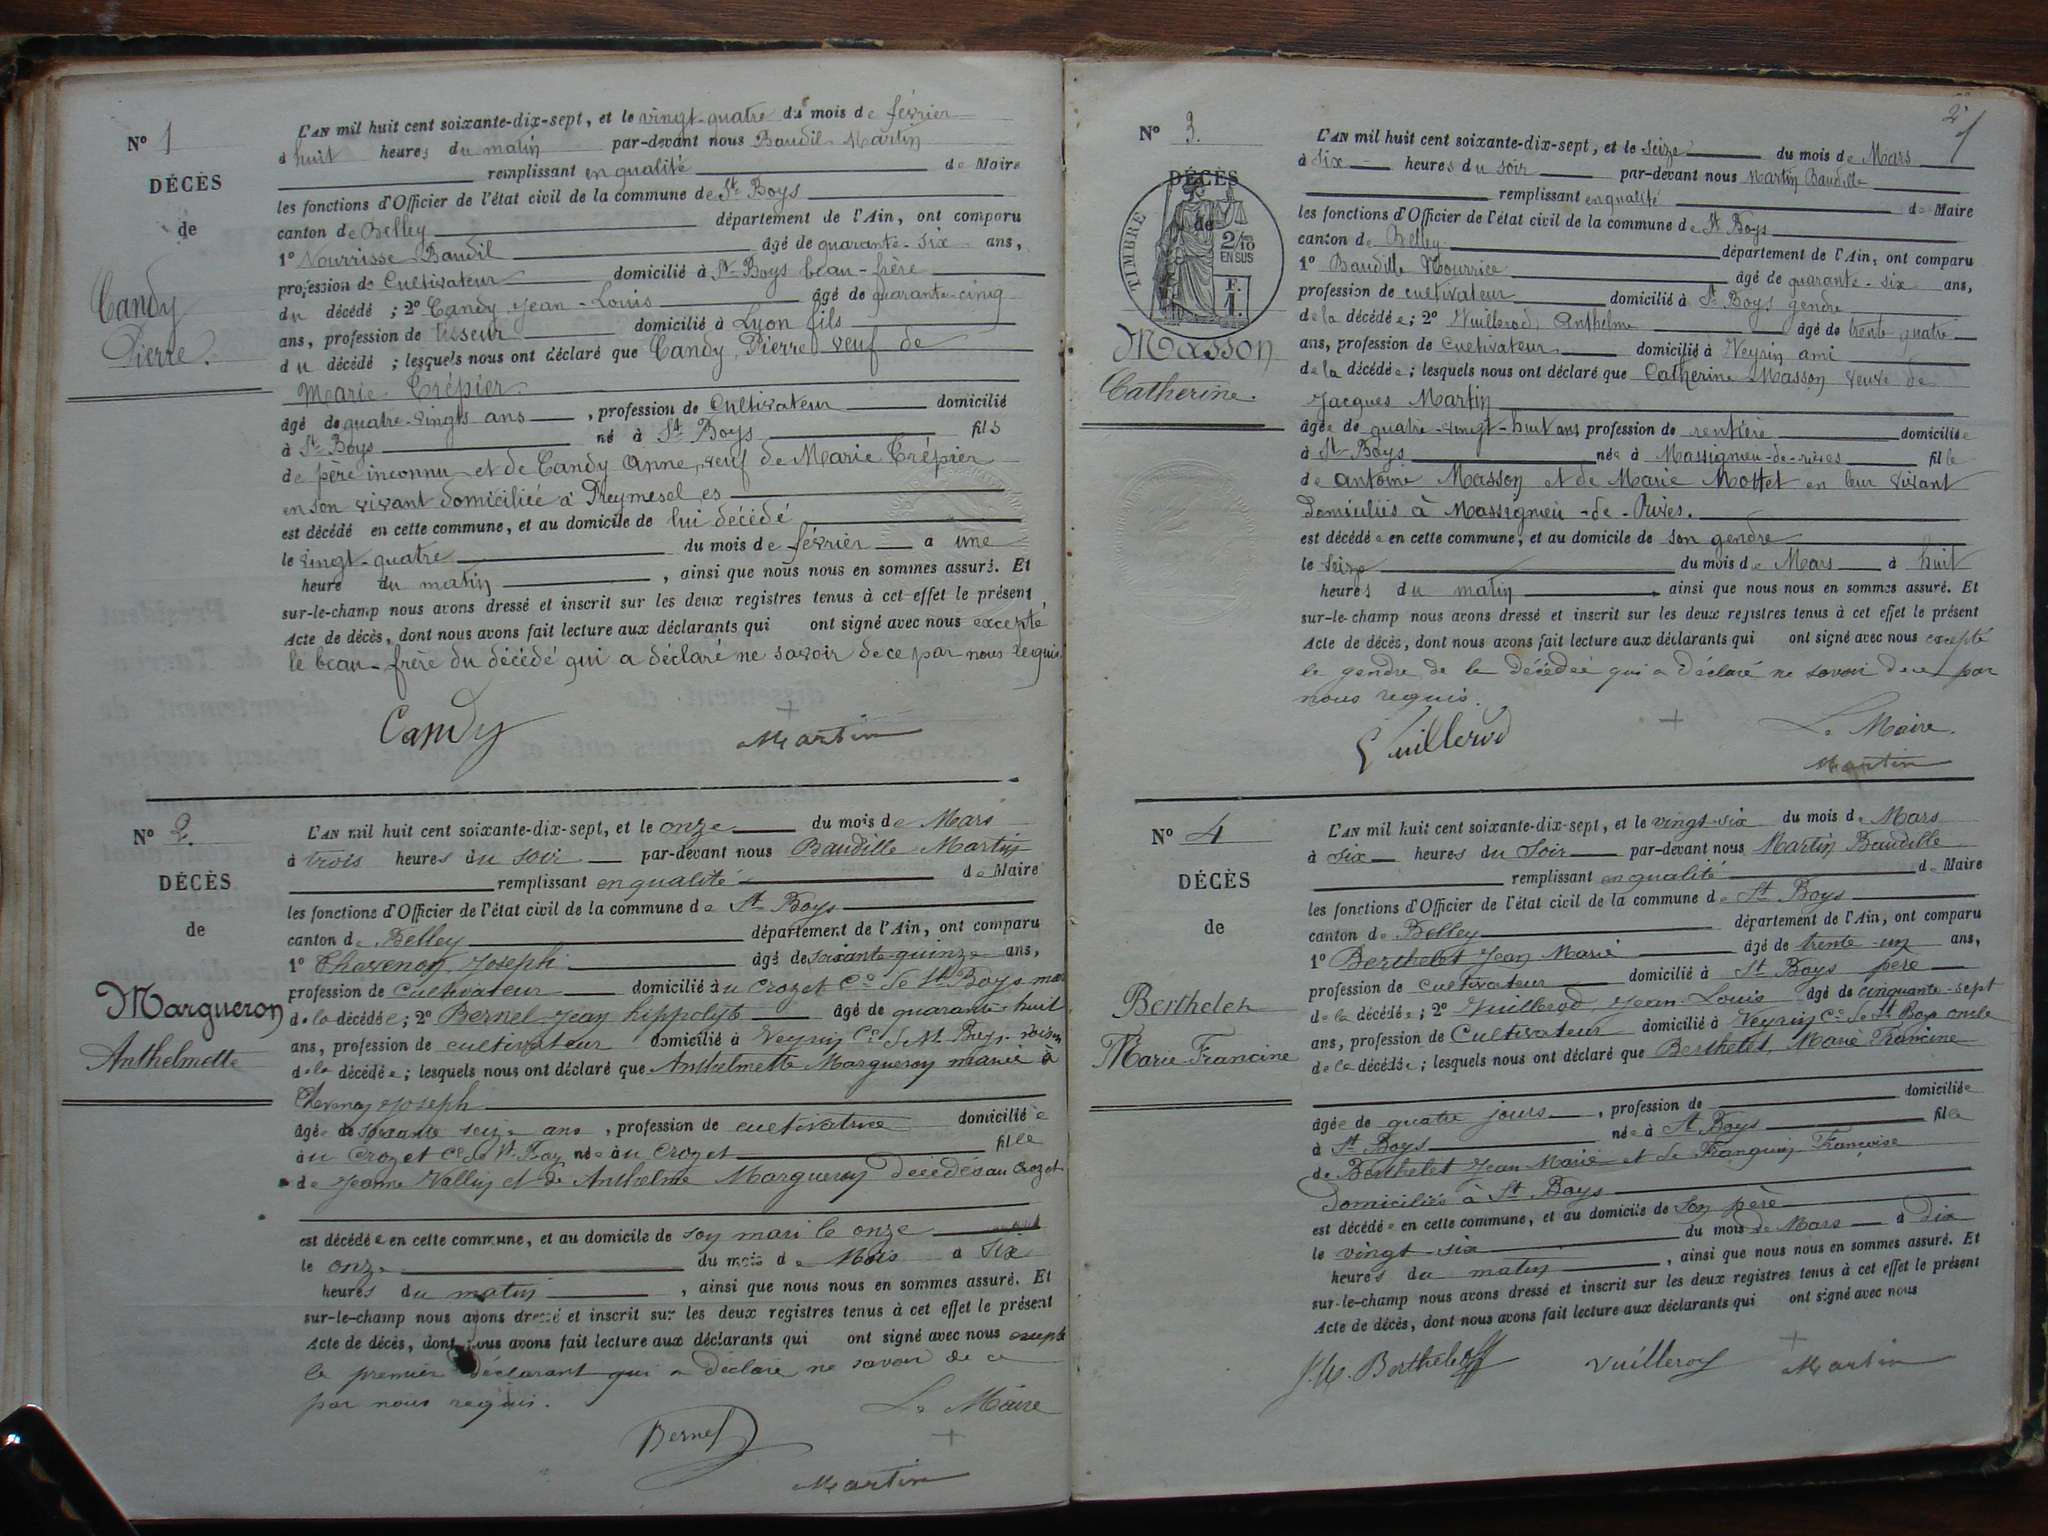 N° 1
DÉCÈS
de
Candy
Pierre.
L'AN mil huit cent soixante-dix-sept, et le vingt-quatre du mois de février
à huit heures du matin par-devant nous Baudil Martin
remplissant en qualité de Maire
les fonctions d'Officier de l'état civil de la commune de St Boys
canton de Belley département de l'Ain, ont comparu
1° Nourrisse Baudil âgé de quarante-six ans,
profession de Cultivateur domicilié à St Boys beau-frère
du décédé ; 2° Candy Jean-Louis âgé de quarante-cinq
ans, profession de tisseur domicilié à Lyon fils
du décédé ; lesquels nous ont déclaré que Candy Pierre veuf de
Marie Trépier
âgé de quatre-vingts ans , profession de Cultivateur domicilié
à St Boys né à St Boys fils
de père inconnu et de Candy Anne, veuf de Marie Trépier
en son vivant domiciliée à
est décédé en cette commune, et au domicile de lui décédé
le vingt-quatre du mois de février à une
heure du matin , ainsi que nous nous en sommes assuré. Et
sur-le-champ nous avons dressé et inscrit sur les deux registres tenus à cet effet le présent
Acte de décès, dont nous avons fait lecture aux déclarants qui ont signé avec nous excepté
le beau-frère du décédé qui a déclaré ne savoir de ce par nous requis.
Candy Martin
N° 2.
DÉCÈS
de
Margueron
Anthelmette
L'AN mil huit cent soixante-dix-sept, et le onze du mois de Mars
à trois heures du soir par-devant nous Baudille Martin
remplissant en qualité de Maire
les fonctions d'Officier de l'état civil de la commune de St Boys
canton de Belley département de l'Ain, ont comparu
1° Chavenon Joseph âgé de soixante-quinze ans,
profession de Cultivateur domicilié au Crozet Cne de St Boys mari
de la décédée ; 2° Bernel Jean hippolyte âgé de quarante-huit
ans, profession de cultivateur domicilié à Veyrin Cne de St Boys voisin
de la décédée ; lesquels nous ont déclaré que Anthelmette Margueron mariée à
Chevenon Joseph
âgée de soixante seize ans , profession de cultivatrice domiciliée
au Crozet Cne de St Boy née au Crozet fille
de Jeanne Vallin et de Anthelme Margueron décédés au Crozet
est décédée en cette commune, et au domicile de son mari le onze
le onze du mois de Mars à six
heures du matin , ainsi que nous nous en sommes assuré. Et
sur-le-champ nous avons dressé et inscrit sur les deux registres tenus à cet effet le présent
Acte de décès, dont nous avons fait lecture aux déclarants qui ont signé avec nous excepté
le premier déclarant qui a déclaré ne savoir de ce
par nous requis. Le Maire
Bernel
Martin
2
N° 3.
DÉCÈS
de
TIMBRE
2/10
EN SUS
F.
1.
Masson
Catherine.
L'AN mil huit cent soixante-dix-sept, et le seize du mois de Mars
à six heures du soir par-devant nous Martin Baudille
remplissant en qualité de Maire
les fonctions d'Officier de l'état civil de la commune de St Boys
canton de Belley département de l'Ain, ont comparu
1° Baudille Nourrice âgé de quarante-six ans,
profession de cultivateur domicilié à St Boys gendre
de la décédée ; 2° Vuillerod Anthelme âgé de trente quatre
ans, profession de Cultivateur domicilié à Veyrin ami
de la décédée ; lesquels nous ont déclaré que Catherine Masson veuve de
Jacques Martin
âgée de quatre-vingt-huit ans profession de rentière domiciliée
à St Boys née à Massignieu-de-rives fille
de Antoine Masson et de Marie Mottet en leur vivant
Domiciliés à Massignieu-de-Rives.
est décédée en cette commune, et au domicile de son gendre
le seize du mois de Mars à huit
heures du matin ainsi que nous nous en sommes assuré. Et
sur-le-champ nous avons dressé et inscrit sur les deux registres tenus à cet effet le présent
Acte de décès, dont nous avons fait lecture aux déclarants qui ont signé avec nous excepté
le gendre de la décédée qui a déclaré ne savoir de ce par
nous requis.
Vuillerod Le Maire.
Martin
N° 4
DÉCÈS
de
Berthelet
Marie Francine
L'AN mil huit cent soixante-dix-sept, et le vingt-six du mois de Mars
à six heures du Soir par-devant nous Martin Baudille
remplissant en qualité de Maire
les fonctions d'Officier de l'état civil de la commune de St Boys
canton de Belley département de l'Ain, ont comparu
1° Berthelet Jean Marie âgé de trente-un ans,
profession de cultivateur domicilié à St Boys père
de la décédée ; 2° Vuillerod Jean Louis âgé de cinquante-sept
ans, profession de Cultivateur domicilié à Veyrin Cne de St Boys oncle
de la décédée ; lesquels nous ont déclaré que Berthelet, Marie Francine
âgée de quatre jours , profession de domiciliée
à St Boys née à St Boys fille
de Berthelet Jean Marie et de Franquin Françoise
Domiciliés à St Boys
est décédée en cette commune, et au domicile de Son père
le vingt-six du mois de Mars à dix
heures du matin , ainsi que nous nous en sommes assuré. Et
sur-le-champ nous avons dressé et inscrit sur les deux registres tenus à cet effet le présent
Acte de décès, dont nous avons fait lecture aux déclarants qui ont signé avec nous
J.M. Berthelet Vuillerod Martin